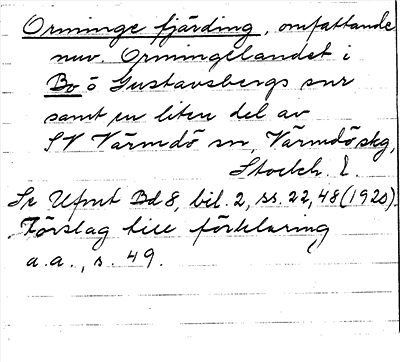 Orminge fjärding, omfattande
nuv. Ormingelandet i
Bo o Gustavsbergs snr
samt en liten del av
SV Värmdö sn, Värmdö skg,
Stockh. l.
Se Ufmt Bd 8, bil. 2, ss. 22, 48 (1920).
Förslag till förklaring
a.a., s. 49.